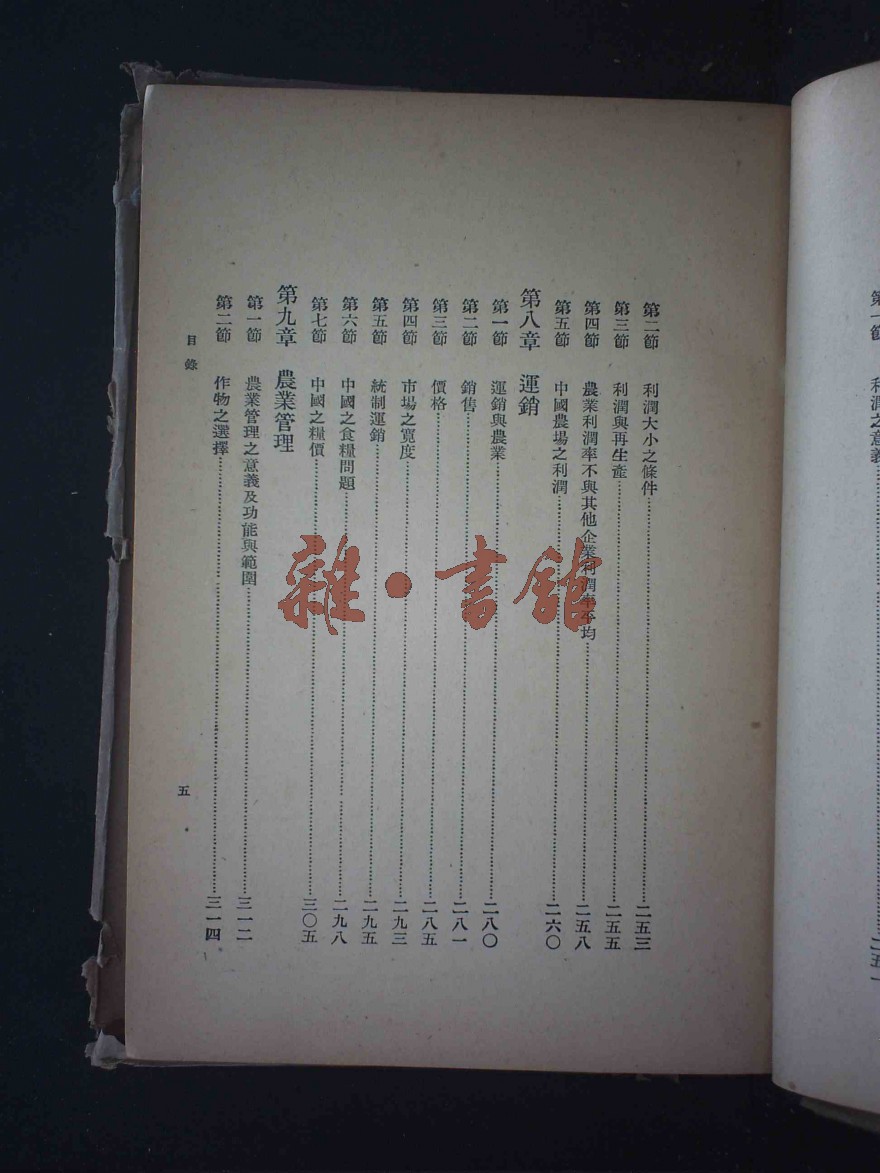 第一節 利潤之意義 二五一
第二節 利潤大小之條件 二五三
第三節 利潤與再生產 二五五
第四節 農業利潤率不與其他企業利潤率平均 二五八
第五節 中國農場之利潤 二六〇
第八章 運銷
第一節 運銷與農業 二八〇
第二節 銷售 二八一
第三節 價格 二八五
第四節 市場之寬度 二九三
第五節 統制運銷 二九五
第六節 中國之食糧問題 二九八
第七節 中國之糧價 三〇五
第九章 農業管理
第一節 農業管理之意義及功能與範圍 三一二
第二節 作物之選擇 三一四
目錄
五
雜·書館